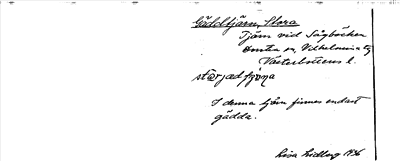 Gäddtjärn, Stora
Tjärn vid Sågbäcken
sn, Vilhelmina tg
Västerbottens l.
I denna tjärn finnes endast
gädda.
Lisa Lidberg 1936